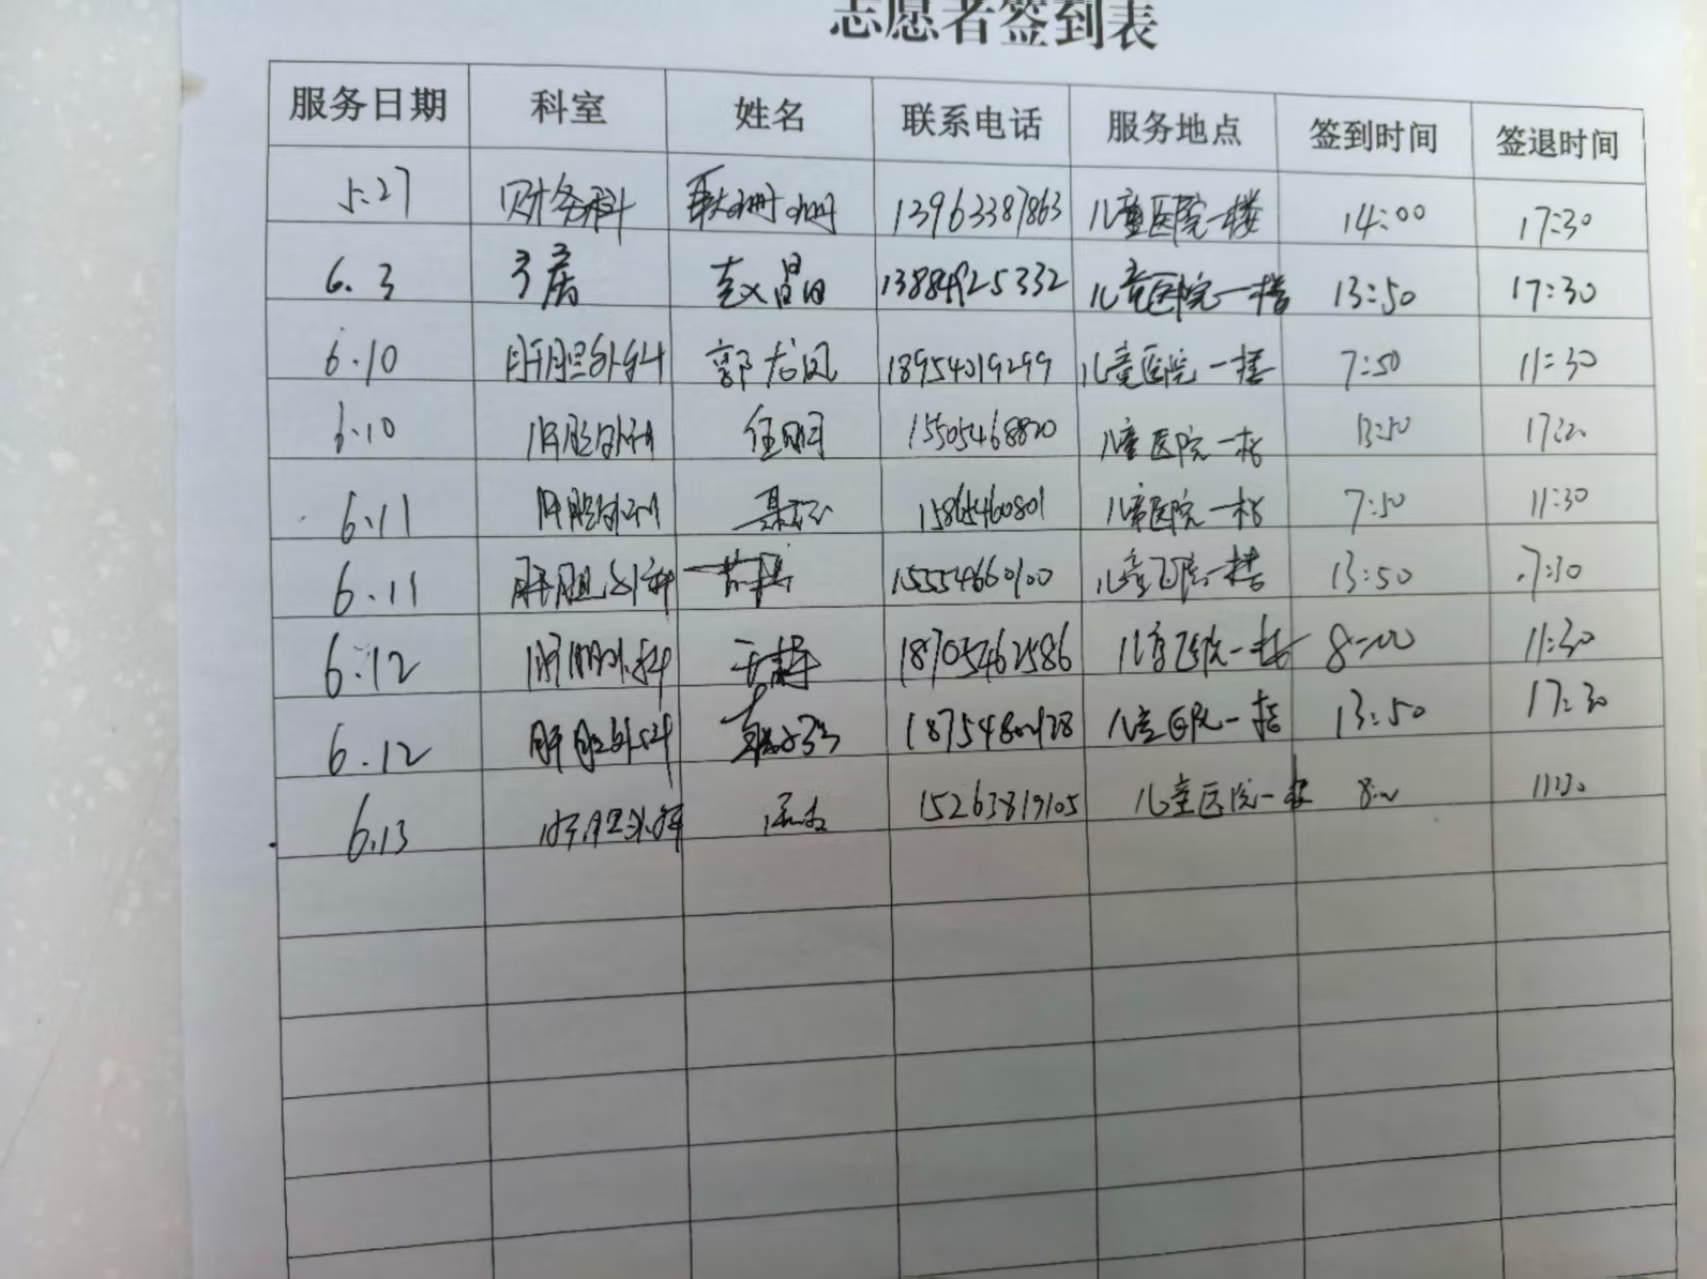 志愿者签到表
服务日期 科室 姓名 联系电话 服务地点 签到时间 签退时间
5.27 财务科 耿珊珊 13963387863 儿童医院一楼 14:00 17:30
6.3 产房 赵晶 13884925332 儿童医院一楼 13:50 17:30
6.10 肝胆外科 郭龙凤 18954019299 儿童医院一楼 7:50 11:30
6.10 肝胆外科 任明月 15505468820 儿童医院一楼 13:50 17:20
6.11 肝胆外科 15865460801 儿童医院一楼 7:50 11:30
6.11 肝胆外科 15554660100 儿童医院一楼 13:50 17:30
6.12 肝胆外科 18705462586 儿童医院一楼 8:00 11:30
6.12 肝胆外科 儿童医院一楼 13:50 17:30
6.13 肝胆外科 15263819105 儿童医院一楼 8:00 11:30